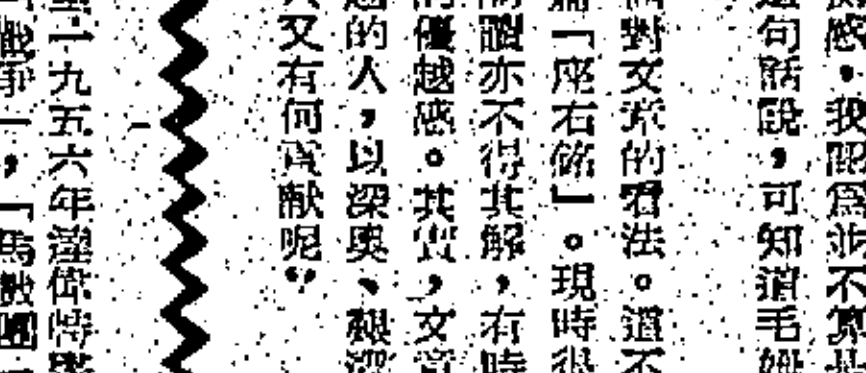 感，我認為並不算是
這句話說，可知道毛姆
對文章的看法。道不
「座右銘」。現時很
讀亦不得其解，有時
優越感。其實，文章
的人，以深奧、艱澀
又有何貢献呢？
一九五六年溫偉特
戰爭」，「馬戲團